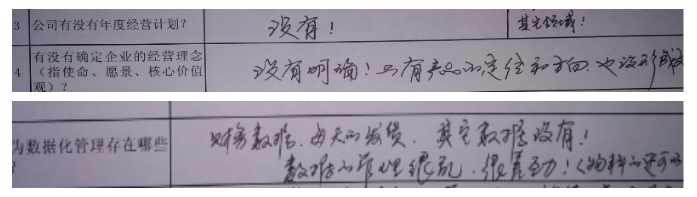 3 公司有没有年度经营计划? 没有!
4 有没有确定企业的经营理念
(指使命、愿景、核心价值
观)? 没有明确!只有产品的定位和方向,也没形成
为数据化管理存在哪些 财务数据、每天的发货、其它数据没有!
数据的管理很乱,很差劲!(物料的还可以